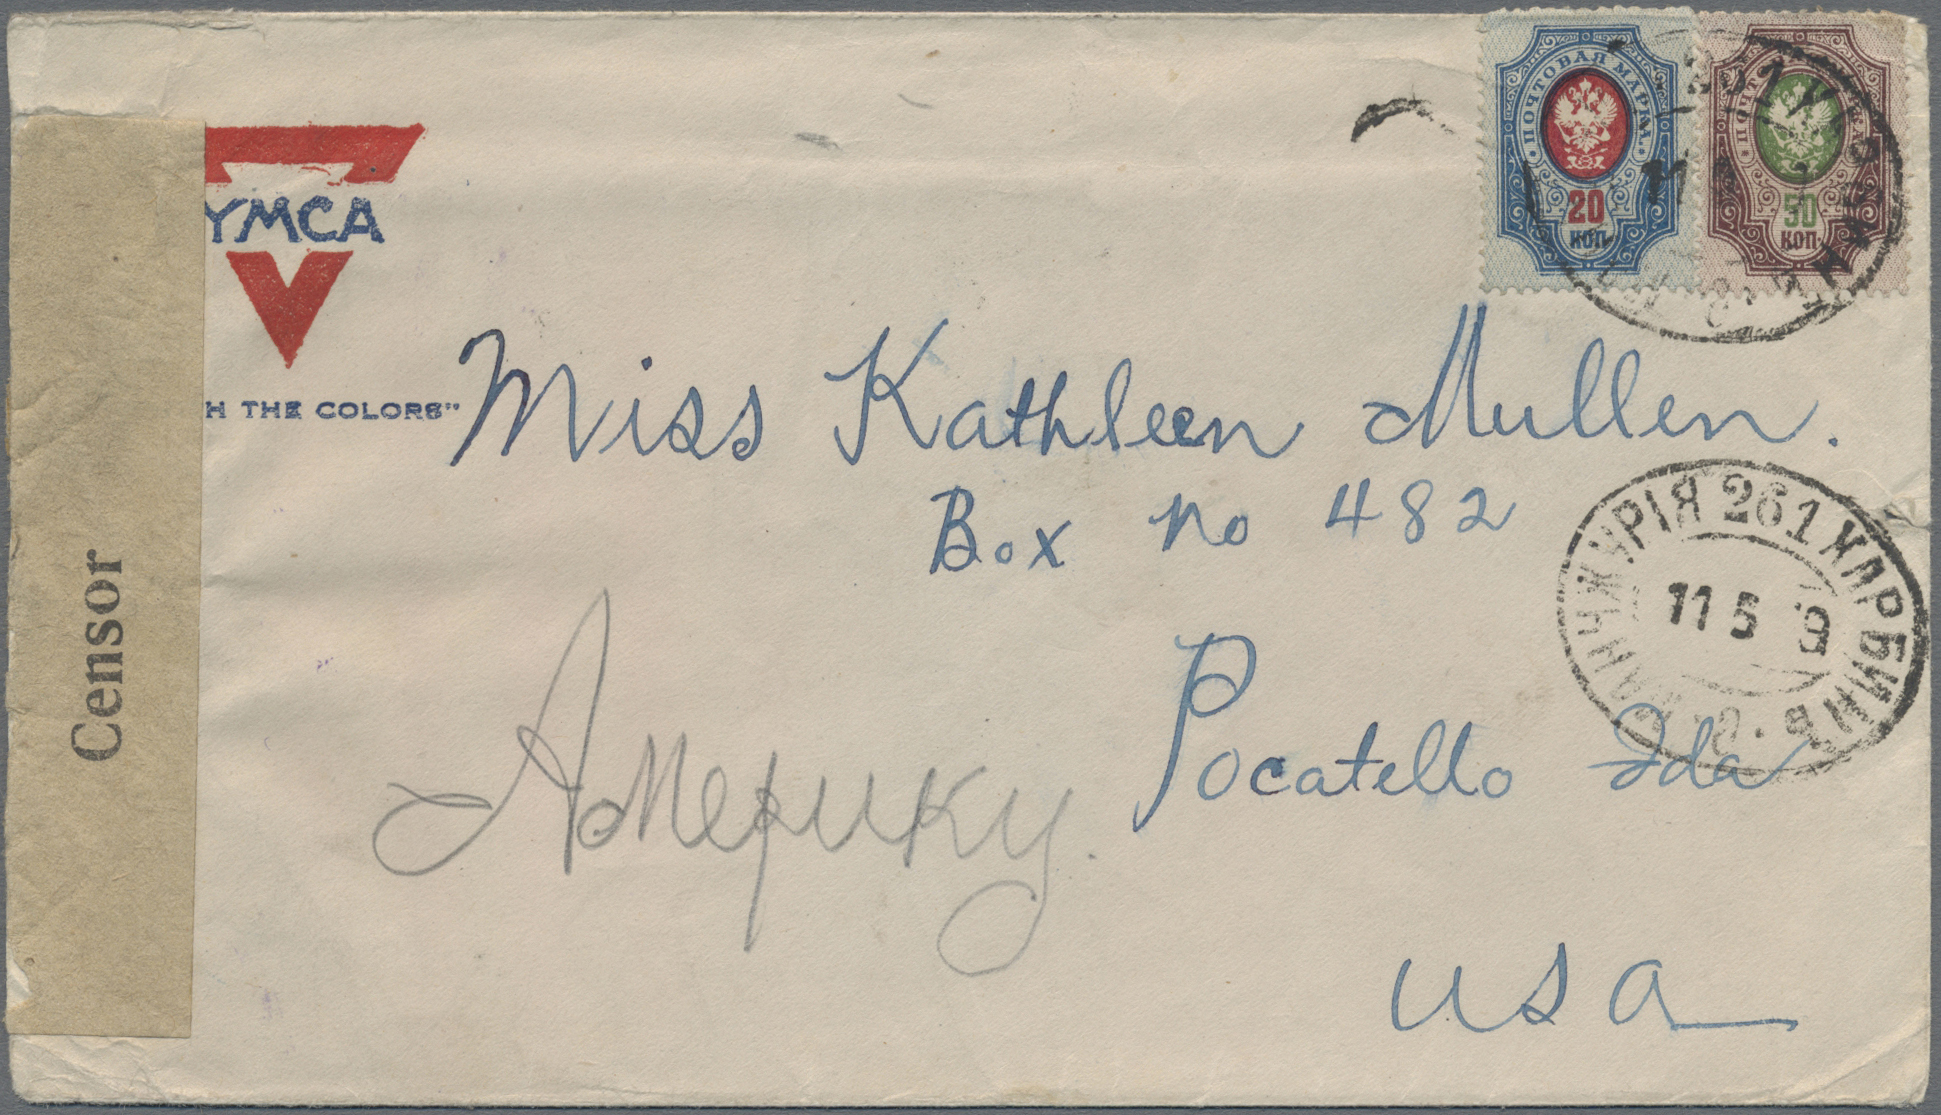 ПОЧТОВАЯ МАРКА
20
КОП
50
КОП
YMCA
H THE COLORS"
Censor
Miss Kathleen Mullen.
Box No 482
Pocatello Ida
USA
Америку.
МАНЧЖУРІЯ 261 ХАРБИНЪ
11 5